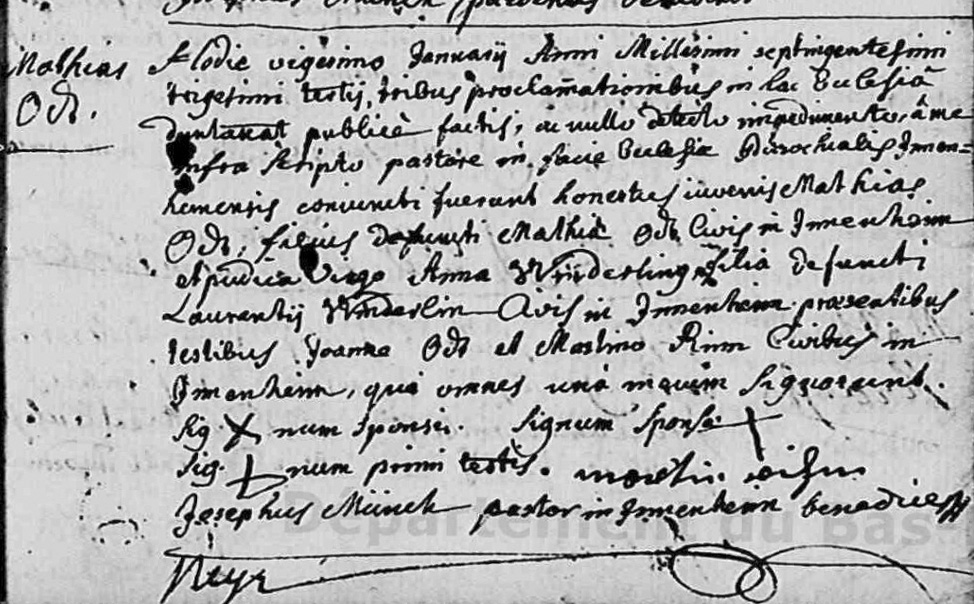 Mathias
Odt.
Hodie vigesimo Januarij Anni Millesimi septingentesimi
trigesimi tertij, tribus proclamationibus in hac Ecclesiâ
duntaxat publicè factis, ac nullo detecto impedimento, â me
infra scripto pastore in facie Ecclesiæ Parochialis Innen=
hemensis coniuncti fuerunt honestus iuvenis Mathias
Odt, filius defuncti Mathiæ Odt Civis in Innenheim
et pudica Virgo Anna Winderling filia defuncti
Laurentij Winderlin Civis in Innenheim præsentibus
testibus Joanne Odt et Martino Rinn Civibus in
Innenheim, qui omnes unà mecum signorunt.
Sig num sponsi. Signum sponsæ
Sig. num primi testis. martin
Josephus Münck pastor in Innenheim
Département du Bas